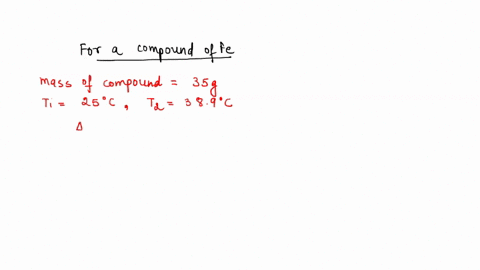 For a compound of Fe
mass of compound = 35g
T1 = 25°C, T2 = 38.9°C
Δ